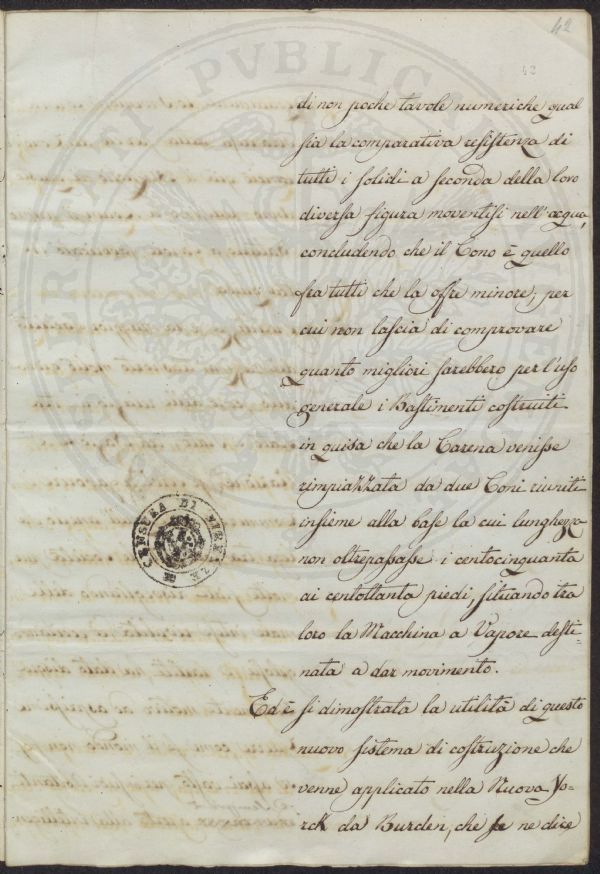 42
42
di non poche tavole numeriche qual
sia la comparativa resistenza di
tutti i solidi a seconda della loro
diversa figura moventisi nell'acqua,
concludendo che il Cono è quello
fra tutti che la offre minore; per
cui non lascia di comprovare
quanto migliori sarebbero per l'uso
generale i Bastimenti costruiti
in guisa che la Carena venisse
rimpiazzata da due Coni riuniti
insieme alla base la cui lunghezza
non oltrepassasse i centocinquanta
ai centottanta piedi, situando tra
loro la Macchina a Vapore desti-
nata a dar movimento.
Ed è si dimostrata la utilità di questo
nuovo sistema di costruzione che
venne applicato nella Nuova Yo-
rck da Burden, che se ne dice
CENSURA DI FIRENZE